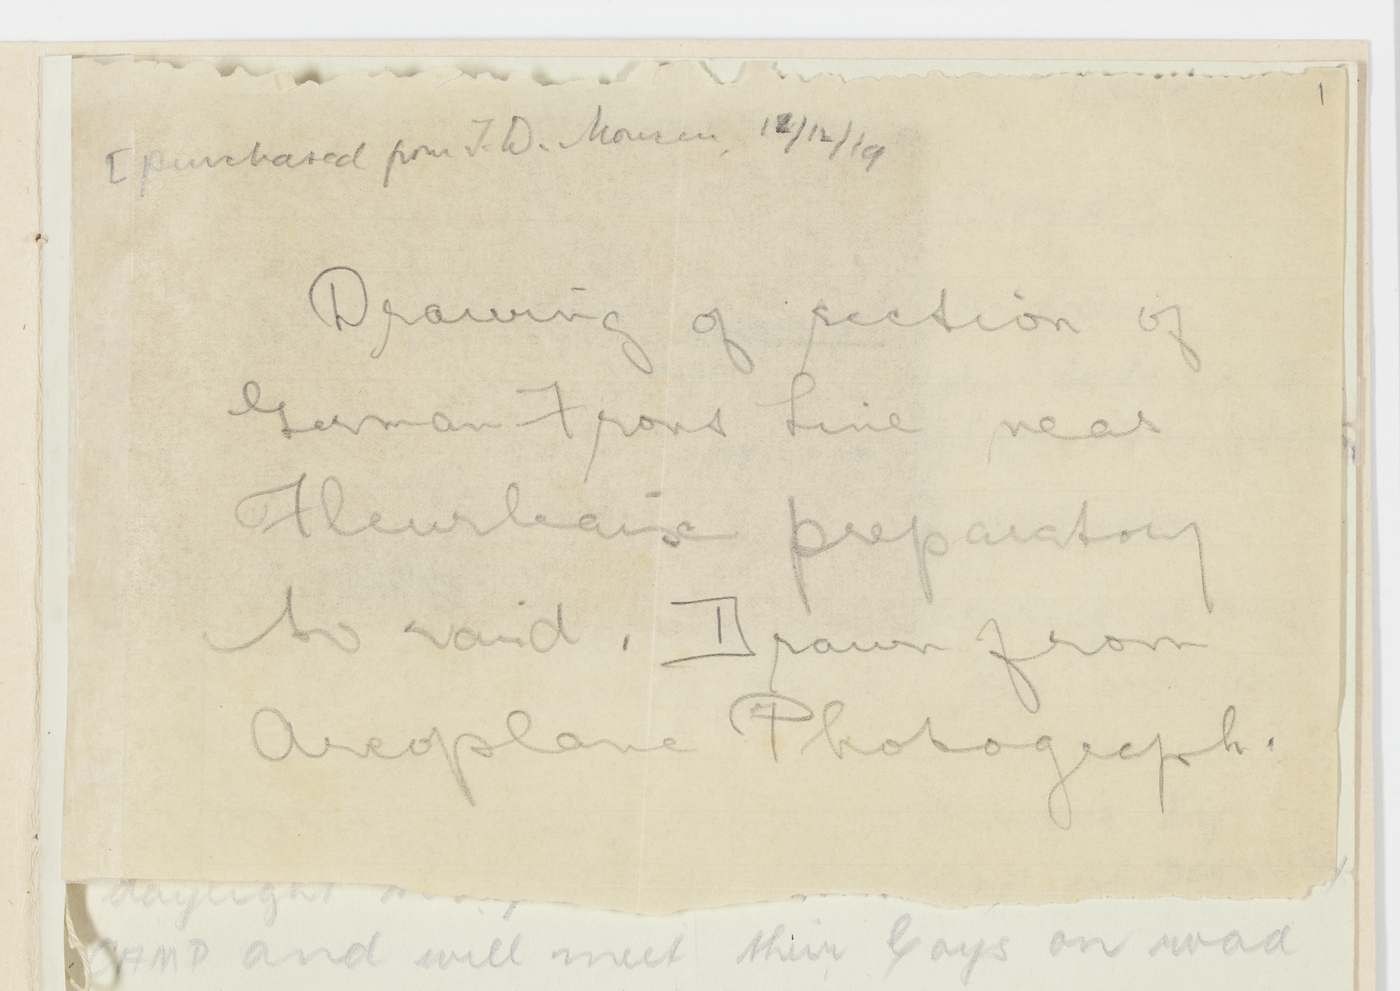 1
[purchased from F. D. 12/12/19
Drawing of section of
German Front Line near
Fleurbaix preparatory
to raid. Drawn from
Areoplane Photograph.
daylight
CAMP and will meet their Coys on road